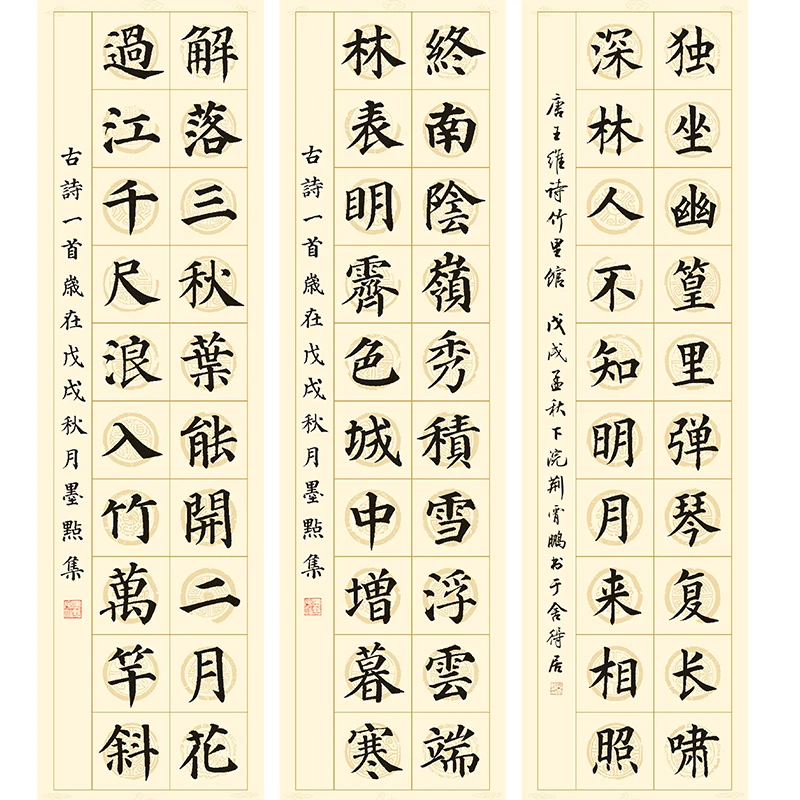 独坐幽篁里弹琴复长啸
深林人不知明月来相照
唐王维诗竹里馆 戊戌孟秋下浣荆霄鹏书于舍得居
終南陰嶺秀積雪浮雲端
林表明霽色城中增暮寒
古詩一首歲在戊戌秋月墨點集
解落三秋葉能開二月花
過江千尺浪入竹萬竿斜
古詩一首歲在戊戌秋月墨點集